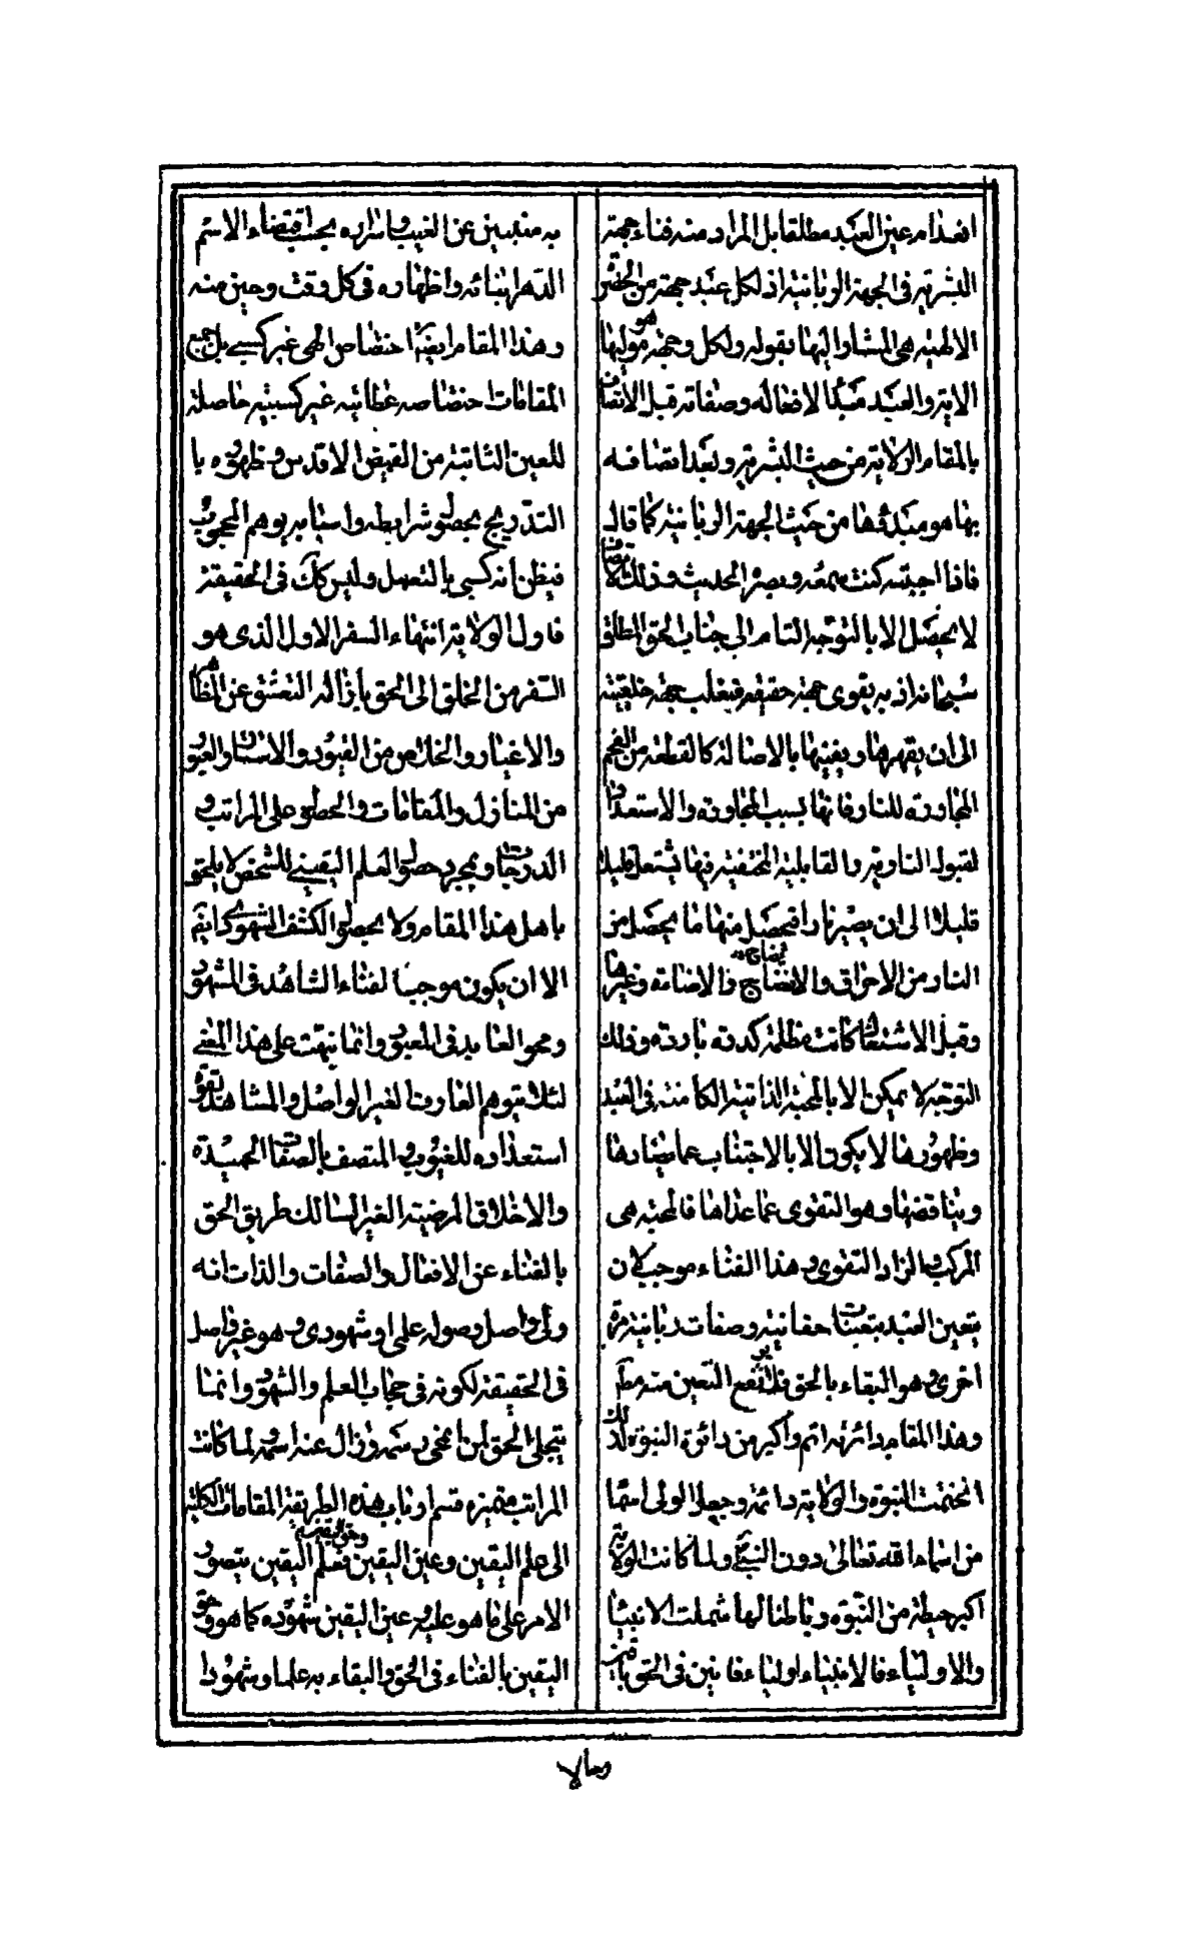 انعدام عين العبد مطلقا بل المراد منه فناء جهته
البشرية فى الجهة الربانية اذ لكل عبد جهة من الحضرة
الالهية هى المشار اليها بقوله ولكل وجهة هو موليها
الاية والعبد مبدا لافعاله وصفاته قبل الاتصاف
بالمقام الولاية من حيث البشرية وبعد اتصافه
بها هو مبدؤها من حيث الجهة الربانية كما قال
فاذا احببته كنت سمعه وبصره الحديث وذلك الاتصاف
لا يحصل الا بالتوجه التام الى جناب الحق المطلق
سبحانه اذ به يقوى جهة حقيته فيغلب جهة خلقيته
الى ان يقهرها ويفنيها بالاصالة كالقطعة من الفحم
المجاورة للنار فانها بسبب المجاورة والاستعداد
لقبول النارية والقابلية المختفية فيها يشتعل قليلا
قليلا الى ان يصير نارا فيحصل منها ما يحصل من
النار من الاحراق والانضاج والاضاءة وغيرها
وقبل الاشتعال كانت مظلمة كدرة باردة وذلك
التوجه لا يمكن الا بالمحبة الذاتية الكامنة فى العبد
وظهورها لا يكون الا بالاجتناب عما يضادها
ويناقضها وهو التقوى عما عداها فالمحبة هى
المركب والزاد التقوى وهذا الفناء موجب لان
يتعين العبد بتعينات حقانية وصفات ربانية مرة
اخرى وهو البقاء بالحق فلا يرتفع التعين منه مطلقا
وهذا المقام دائرته اتم واكبر من دائرة النبوة لذلك
انختمت النبوة والولاية دائمة وجعل الولى اسما
من اسماء الله تعالى دون النبى ولما كانت الولاية
اكبر حيطة من النبوة وباطنا لها شملت الانبياء
والاولياء فالانبياء اولياء فانين فى الحق باقين
به منبئين عن الغيب واسراره بحسب اقتضاء الاسم
الدهر انبائه واظهاره فى كل وقت وحين منه
وهذا المقام ايضا اختصاص الهى غير كسبى بل جميع
المقامات اختصاصه عطائية غير كسبية حاصلة
للعين الثابتة من الفيض الاقدس وظهوره با
التدريج بحصول شرايطه واسبابه يوهم المحجوب
فيظن انه كسبى بالتعمل وليس كذلك فى الحقيقة
فاول الولاية انتهاء السفر الاول الذى هو
السفر من الخلق الى الحق بازالة التعشق عن المظاهر
والاغيار والخلاص من القيود والاستار والعبور
من المنازل والمقامات والحصول على المراتب و
الدرجات وبمجرد حصول العلم اليقينى للشخص لا يلحق
باهل هذا المقام ولا بحصول الكشف الشهودى ايضا
الا ان يكون موجبا لفناء الشاهد فى المشهود
ومحو العابد فى المعبود وانما نبهت على هذا المعنى
لئلا يتوهم العارف الغير الواصل والمشاهد بقوة
استعداده للغيوب والمتصف بالصفات الحميدة
والاخلاق المرضية الغير السالك طريق الحق
بالفناء عن الافعال والصفات والذات انه
ولى واصل وصوله علمى او شهودى وهو غير واصل
فى الحقيقة لكونه فى حجاب العلم والشهود وانما
يتجلى الحق لمن انمحى رسمه وزال عنه اسمه لما كانت
المراتب متميزة قسم ارباب هذه الطريقة المقامات الكلية
الى علم اليقين وعين اليقين وحق اليقين فعلم اليقين بتصور
الامر على ما هو عليه وعين اليقين شهوده كما هو وحق
اليقين بالفناء فى الحق والبقاء به علما وشهودا
وحالا